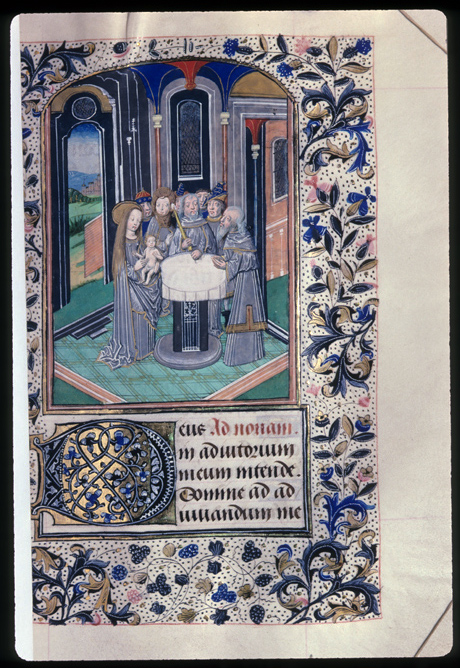 eus Ad nonam.
in adiutorium
meum intende.
Domine ad ad
iuuandum me